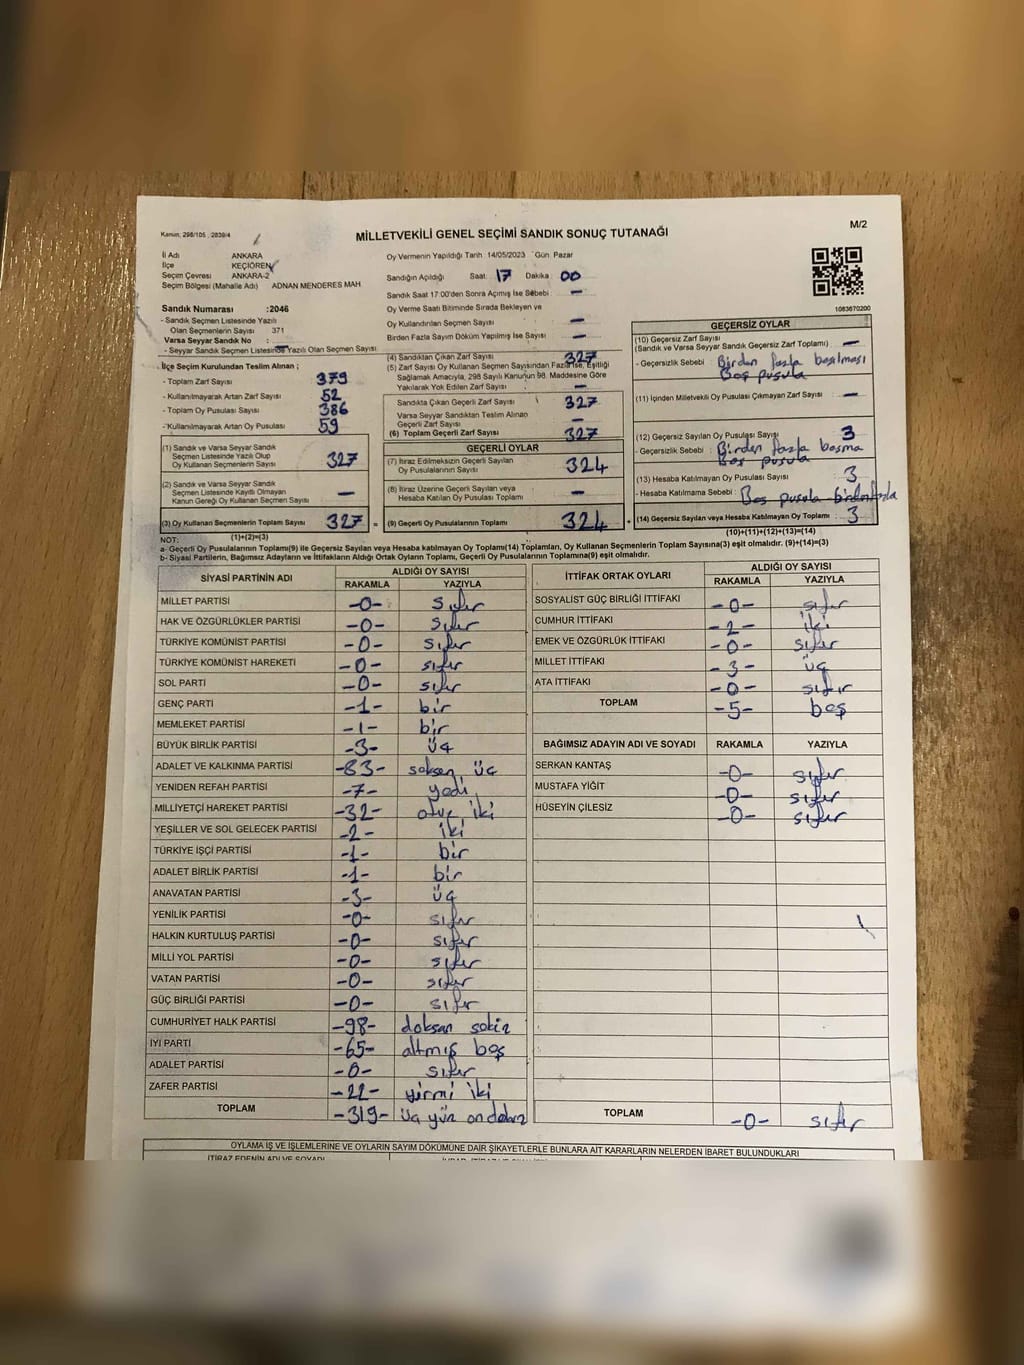 Kanun; 298/105 , 2839/4
M/2
MİLLETVEKİLİ GENEL SEÇİMİ SANDIK SONUÇ TUTANAĞI
İl Adı ANKARA
İlçe KEÇİÖREN
Seçim Çevresi ANKARA-2
Seçim Bölgesi (Mahalle Adı) ADNAN MENDERES MAH
Sandık Numarası :2046
- Sandık Seçmen Listesinde Yazılı
Olan Seçmenlerin Sayısı 371
Varsa Seyyar Sandık No :
- Seyyar Sandık Seçmen Listesinde Yazılı Olan Seçmen Sayısı
İlçe Seçim Kurulundan Teslim Alınan ;
- Toplam Zarf Sayısı 379
- Kullanılmayarak Artan Zarf Sayısı 52
- Toplam Oy Pusulası Sayısı 386
- Kullanılmayarak Artan Oy Pusulası 59
(1) Sandık ve Varsa Seyyar Sandık
Seçmen Listesinde Yazılı Olup
Oy Kullanan Seçmenlerin Sayısı 327
(2) Sandık ve Varsa Seyyar Sandık
Seçmen Listesinde Kayıtlı Olmayan
Kanun Gereği Oy Kullanan Seçmen Sayısı –
(3) Oy Kullanan Seçmenlerin Toplam Sayısı 327 =
(1)+(2)=(3)
Oy Vermenin Yapıldığı Tarih 14/05/2023 Gün Pazar
Sandığın Açıldığı Saat: 17 Dakika : 00
Sandık Saat 17:00'den Sonra Açılmış İse Sebebi : –
Oy Verme Saati Bitiminde Sırada Bekleyen ve
Oy Kullandırılan Seçmen Sayısı –
Birden Fazla Sayım Döküm Yapılmış İse Sayısı –
(4) Sandıktan Çıkan Zarf Sayısı 327
(5) Zarf Sayısı Oy Kullanan Seçmen Sayısından Fazla İse, Eşitliği
Sağlamak Amacıyla, 298 Sayılı Kanunun 98. Maddesine Göre
Yakılarak Yok Edilen Zarf Sayısı –
Sandıkta Çıkan Geçerli Zarf Sayısı 327
Varsa Seyyar Sandıktan Teslim Alınan
Geçerli Zarf Sayısı –
(6) Toplam Geçerli Zarf Sayısı 327
GEÇERLİ OYLAR
(7) İtiraz Edilmeksizin Geçerli Sayılan
Oy Pusulalarının Sayısı 324
(8) İtiraz Üzerine Geçerli Sayılan veya
Hesaba Katılan Oy Pusulası Toplamı –
(9) Geçerli Oy Pusulalarının Toplamı 324 +
1083670200
GEÇERSİZ OYLAR
(10) Geçersiz Zarf Sayısı
(Sandık ve Varsa Seyyar Sandık Geçersiz Zarf Toplamı) –
- Geçersizlik Sebebi : Birden fazla basılması
Boş pusula
(11) İçinden Milletvekili Oy Pusulası Çıkmayan Zarf Sayısı –
(12) Geçersiz Sayılan Oy Pusulası Sayısı 3
- Geçersizlik Sebebi : Birden fazla basma
Boş pusula
(13) Hesaba Katılmayan Oy Pusulası Sayısı 3
- Hesaba Katılmama Sebebi : Boş pusula-birden fazla
(14) Geçersiz Sayılan veya Hesaba Katılmayan Oy Toplamı : 3
(10)+(11)+(12)+(13)=(14)
NOT:
a- Geçerli Oy Pusulalarının Toplamı(9) ile Geçersiz Sayılan veya Hesaba katılmayan Oy Toplamı(14) Toplamları, Oy Kullanan Seçmenlerin Toplam Sayısına(3) eşit olmalıdır. (9)+(14)=(3)
b- Siyasi Partilerin, Bağımsız Adayların ve İttifakların Aldığı Ortak Oyların Toplamı, Geçerli Oy Pusulalarının Toplamına(9) eşit olmalıdır.
SİYASİ PARTİNİN ADI ALDIĞI OY SAYISI
RAKAMLA YAZIYLA
MİLLET PARTİSİ -0- sıfır
HAK VE ÖZGÜRLÜKLER PARTİSİ -0- sıfır
TÜRKİYE KOMÜNİST PARTİSİ -0- sıfır
TÜRKİYE KOMÜNİST HAREKETİ -0- sıfır
SOL PARTİ -0- sıfır
GENÇ PARTİ -1- bir
MEMLEKET PARTİSİ -1- bir
BÜYÜK BİRLİK PARTİSİ -3- üç
ADALET VE KALKINMA PARTİSİ -83- seksen üç
YENİDEN REFAH PARTİSİ -7- yedi
MİLLİYETÇİ HAREKET PARTİSİ -32- otuz iki
YEŞİLLER VE SOL GELECEK PARTİSİ -2- iki
TÜRKİYE İŞÇİ PARTİSİ -1- bir
ADALET BİRLİK PARTİSİ -1- bir
ANAVATAN PARTİSİ -3- üç
YENİLİK PARTİSİ -0- sıfır
HALKIN KURTULUŞ PARTİSİ -0- sıfır
MİLLİ YOL PARTİSİ -0- sıfır
VATAN PARTİSİ -0- sıfır
GÜÇ BİRLİĞİ PARTİSİ -0- sıfır
CUMHURİYET HALK PARTİSİ -98- doksan sekiz
İYİ PARTİ -65- altmış beş
ADALET PARTİSİ -0- sıfır
ZAFER PARTİSİ -22- yirmi iki
TOPLAM -319- üç yüz on dokuz
İTTİFAK ORTAK OYLARI ALDIĞI OY SAYISI
RAKAMLA YAZIYLA
SOSYALİST GÜÇ BİRLİĞİ İTTİFAKI -0- sıfır
CUMHUR İTTİFAKI -2- iki
EMEK VE ÖZGÜRLÜK İTTİFAKI -0- sıfır
MİLLET İTTİFAKI -3- üç
ATA İTTİFAKI -0- sıfır
TOPLAM -5- beş
BAĞIMSIZ ADAYIN ADI VE SOYADI RAKAMLA YAZIYLA
SERKAN KANTAŞ -0- sıfır
MUSTAFA YİĞİT -0- sıfır
HÜSEYİN ÇİLESİZ -0- sıfır
TOPLAM -0- sıfır
OYLAMA İŞ VE İŞLEMLERİNE VE OYLARIN SAYIM DÖKÜMÜNE DAİR ŞİKAYETLERLE BUNLARA AİT KARARLARIN NELERDEN İBARET BULUNDUKLARI
İTİRAZ EDENİN ADI VE SOYADI